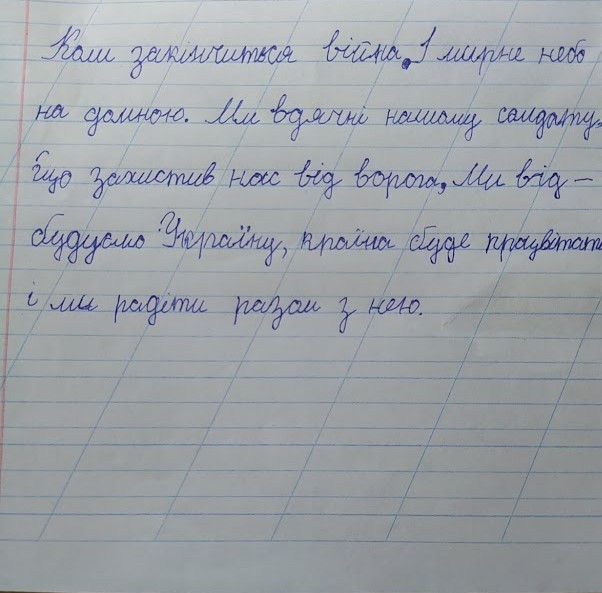 Коли закінчиться війна, І мирне небо
на домною. Ми вдячні нашому солдату,
що захистив нас від ворога, Ми від-
будуємо Україну, країна буде працвітати
і ми радіти разом з нею.